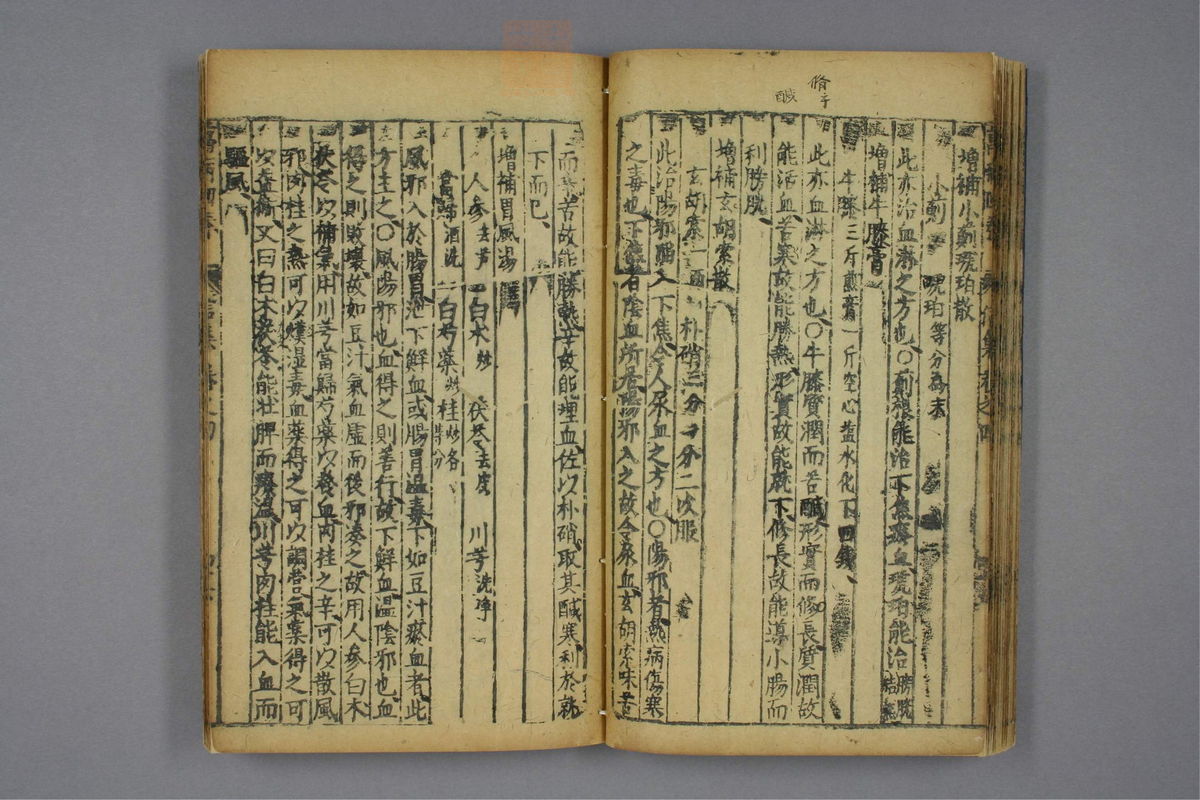 脩 字
鹹
增補小薊琥珀散
小薊 琥珀等分為末
此亦治血淋之方也○薊根能治下焦瘀血琥珀能治膀胱結熱
增補牛膝膏
牛膝三斤煎膏一斤空心鹽水化下四錢
此亦血淋之方也○牛膝質潤而苦鹹形實而脩長質潤故
能活血苦寒故能勝熱形實故能就下修長故能導小腸而
利膀胱
增補玄胡索散
玄胡索一兩 朴硝三分 分二次服
此治陽邪陷入下焦令人尿血之方也○陽邪者熱病傷寒
之毒也下焦者陰血所居陽邪入之故令尿血玄胡索味苦
而辛苦故能勝熱辛故能理血佐以朴硝取其鹹寒利於就
下而已
增補胃風湯
人參去芦 白朮炒 茯苓去皮 川芎洗淨
當歸酒洗 白芍藥炒 桂炒各等分
風邪入於腸胃泄下鮮血或腸胃溫毒下如豆汁瘀血者此
方主之○風陽邪也血得之則善行故下鮮血溫陰邪也血
得之則敗壞故如豆汁氣血虛而後邪湊之故用人參白朮
茯苓以補氣用川芎當歸芍藥以養血肉桂之辛可以散風
邪肉桂之熱可以燥濕毒血藥得之可以調營氣藥得之可
以益衛又曰白朮茯苓能壯脾而療濕川芎肉桂能入血而
驅風